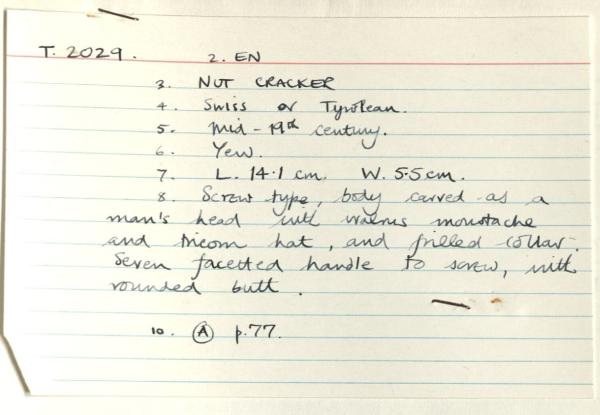 T. 2029. 2. EN
3. NUT CRACKER
4. Swiss or Tyrolean.
5. Mid-19th century.
6. Yew.
7. L. 14.1 cm. W. 5.5 cm.
8. Screw type, body carved as a
man's head with walrus moustache
and tricorn hat, and frilled collar.
Seven facetted handle to screw, with
rounded butt.
10. Ⓐ p.77.